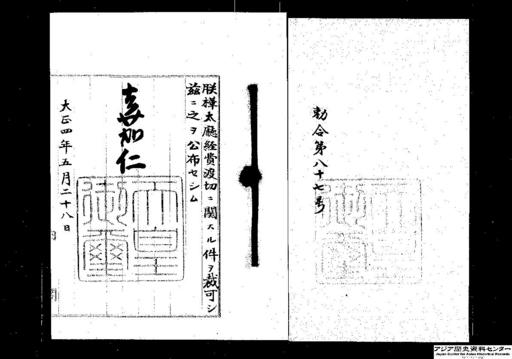 勅令第八十七号
朕樺太庁経費渡切ニ関スル件ヲ裁可シ
茲ニ之ヲ公布セシム
嘉仁
天皇
御璽
大正四年五月二十八日
アジア歴史資料センター
Japan Center for Asian Historical Records